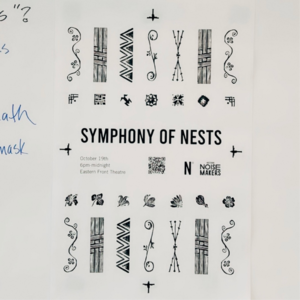 s"?
s
ath
mask
SYMPHONY OF NESTS
October 19th
6pm-midnight
Eastern Front Theatre
N
NOISE
MAKERS